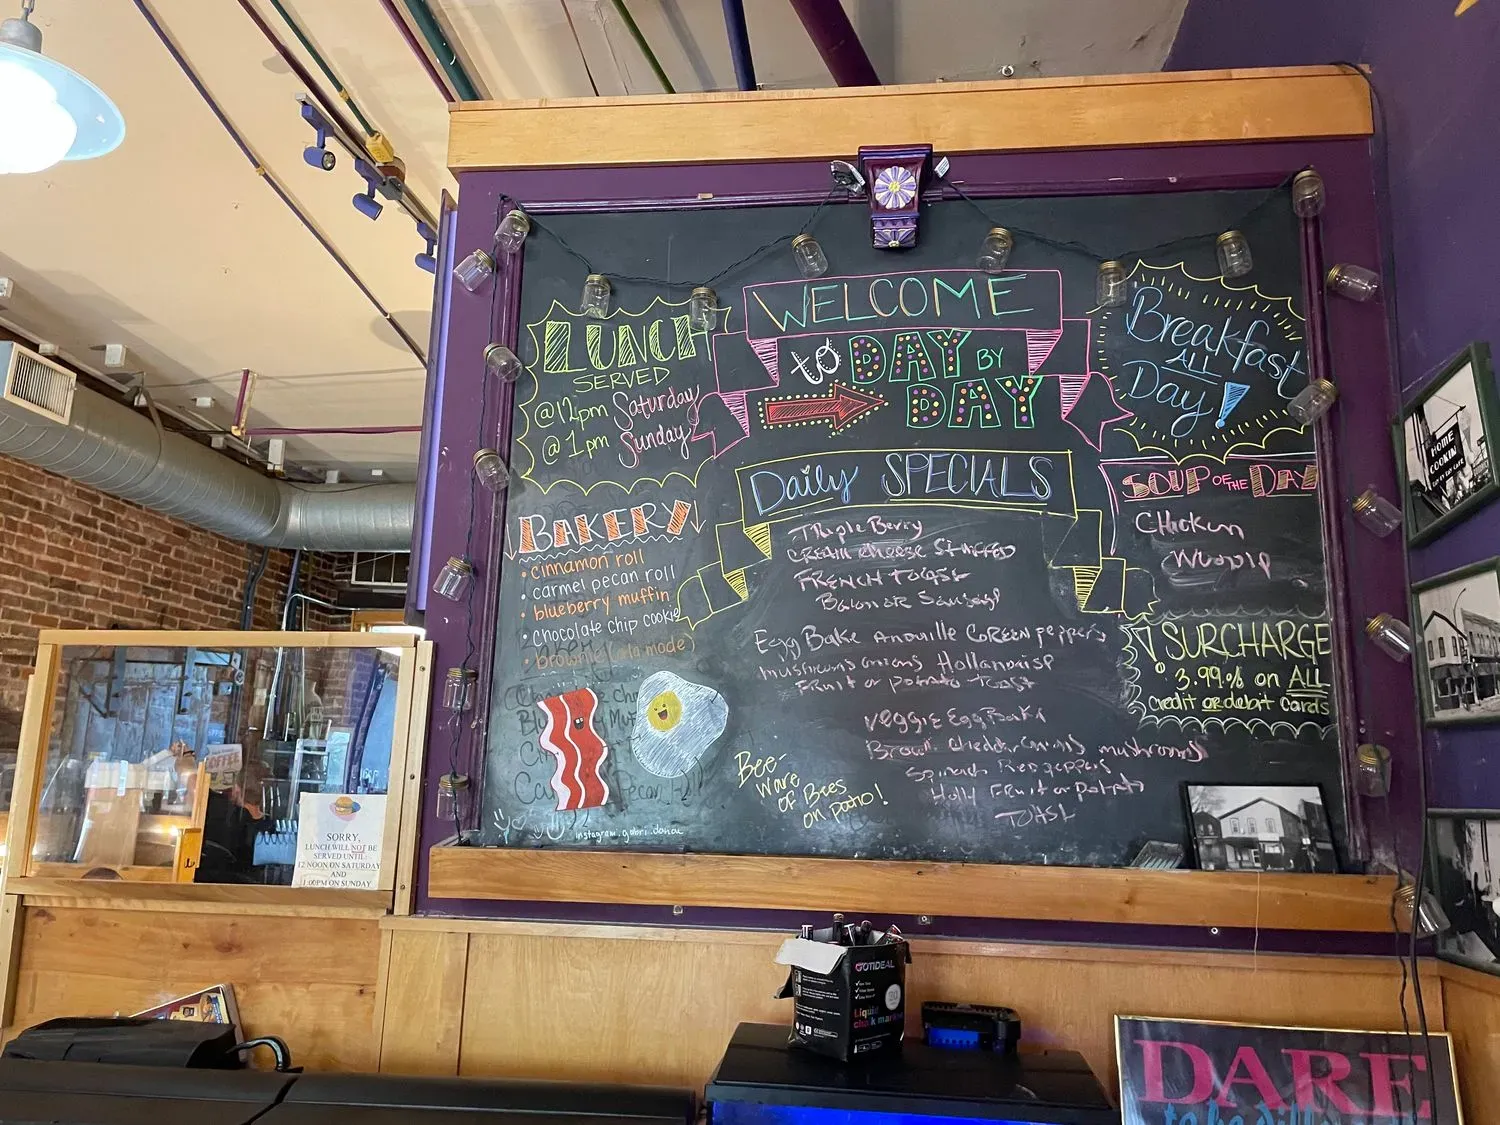 WELCOME
to DAY BY
DAY
LUNCH
SERVED
@12pm Saturday
@ 1pm Sunday
Breakfast
ALL
Day!
Daily SPECIALS
Triple Berry
CREAM cheese Stuffed
FRENCH TOAST
Egg Bake Andouille GREEN peppers
mushrooms onions
Fruit or potato Toast
Veggie Egg Bake
onions mushrooms
Spinach Red peppers
Holly Fruit or potato
TOAST
BAKERY
• cinnamon roll
• carmel pecan roll
• blueberry muffin
• chocolate chip cookie
• brownie (ala mode)
SOUP OF THE DAY
CHICKEN
! SURCHARGE
3.99% on ALL
credit or debit cards
Bee-
ware
of Bees
on patio!
instagram: gabri.danae
SORRY,
LUNCH WILL NOT BE
SERVED UNTIL:
12 NOON ON SATURDAY
AND
1:00PM ON SUNDAY
COFFEE
HOME
COOKIN'
GOTIDEAL
Liquid
chalk mark
DARE
to be